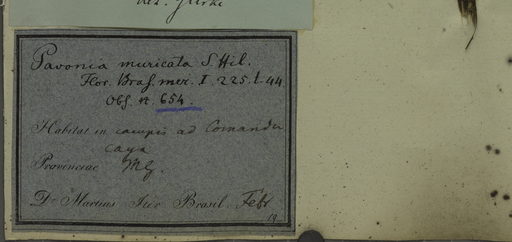 Det. Gürke
Pavonia muricata S. Hil.
Flor. Bras. mer. I. 225. t. 44
Obs. n. 654.
Habitat in campis ad Comandu
caya
Provenciae MG.
Dr Martius Iter Brasil. Febr
19